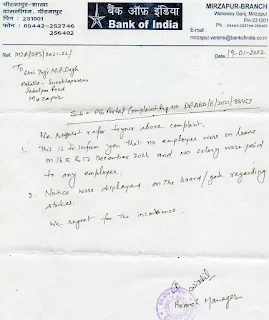 मीरजापुर-शाखा
वासलीगंज, मीरजापुर
पिन: 231001
फोन: 05442-252746
256402
बैंक ऑफ़ इंडिया
Bank of India
BOI
MIRZAPUR-BRANCH
Wellesley Ganj, Mirzapur
Pin-231001
Phone: 05442-252746
256402
E-mail
mirzapur.varanasi@bankofindia.co.in
Ref. MZP/OPS/2021-22/
Date 19-01-2022
To
Shri Yogi M.P. Singh
Mohalla- Surekapuram
Jabalpur Road
Mirzapur
Sub:- PG Portal Complaint Reg No DEABD/E/2021/
We request refer to your above complaint.
1. This is to inform you that no employee were on leave
on 16 & 17 December 2021 and no salary were paid
to any employee.
2. Notice were displayed on the board/gate regarding
strikes.
We regret for the inconvenience.
Branch Manager